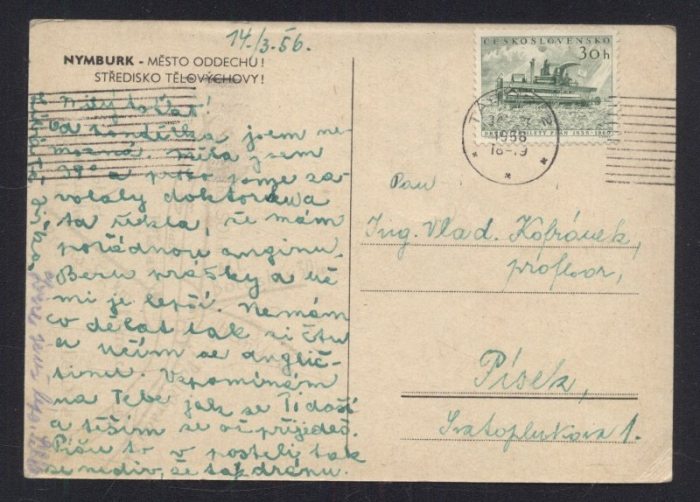 14./3.56.
NYMBURK - MĚSTO ODDECHU!
STŘEDISKO TĚLOVÝCHOVY!
Milý taťat!
Od pondělka jsem ne-
mocná. Měla jsem
39° a proto jsme za-
volaly doktora a
ta řekla, že mám
pořádnou anginu.
Beru prášky a už
mi je lepší. Nemám
co dělat tak si čtu
a učím se anglič-
tinu. Vzpomínám
na Tebe jak se Ti daří
a těším se až přijedeš.
Píšu to v posteli tak
se nediv, že tak drápu.
ČESKOSLOVENSKO
30h
TÁBOR
1958
18-19
Pan
Ing. Vlad. Kofránek,
profesor,
Písek,
Svatoplukova 1.